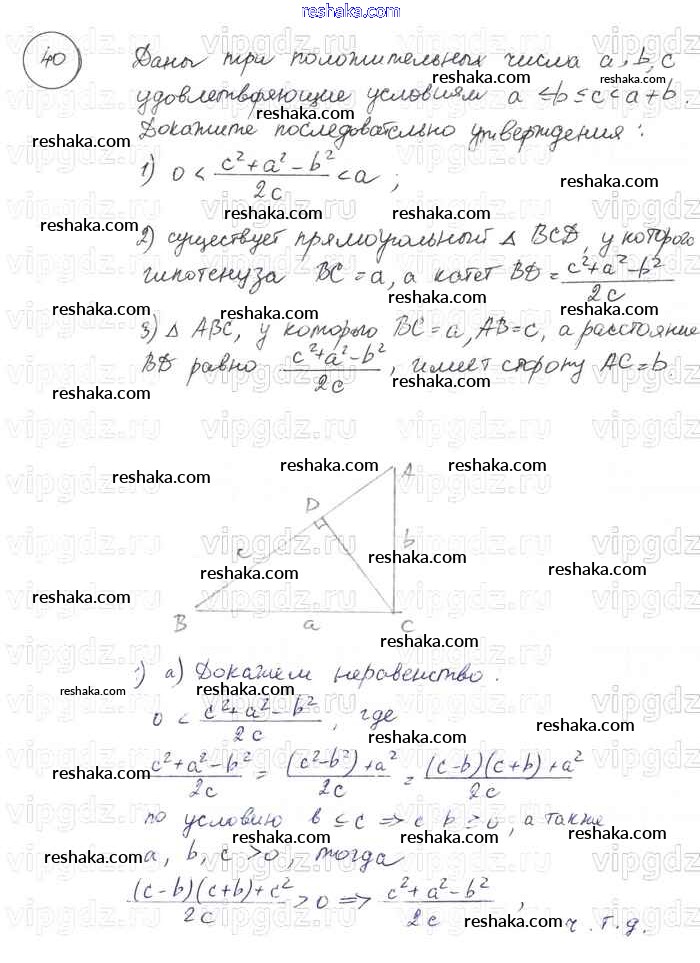 reshaka.com
40 Даны три положительных числа a, b, c
удовлетворяющие условиям a ≤ b ≤ c < a + b.
Докажите последовательно утверждения:
1) 0 < (c² + a² - b²)/2c < a ;
2) существует прямоугольный △ BCD, у которого
гипотенуза BC = a, а катет BD = (c² + a² - b²)/2c
3) △ ABC, у которого BC = a, AB = c, а расстояние
BD равно (c² + a² - b²)/2c, имеет сторону AC = b
A
D
c
b
B
a
C
1) а) Докажем неравенство.
0 < (c² + a² - b²)/2c, где
(c² + a² - b²)/2c = ((c² - b²) + a²)/2c = ((c - b)(c + b) + a²)/2c
по условию b ≤ c ⇒ c b ≥ 0, а также
a, b, c > 0, тогда
((c - b)(c + b) + c²)/2c > 0 ⇒ (c² + a² - b²)/2c,
ч.т.д.